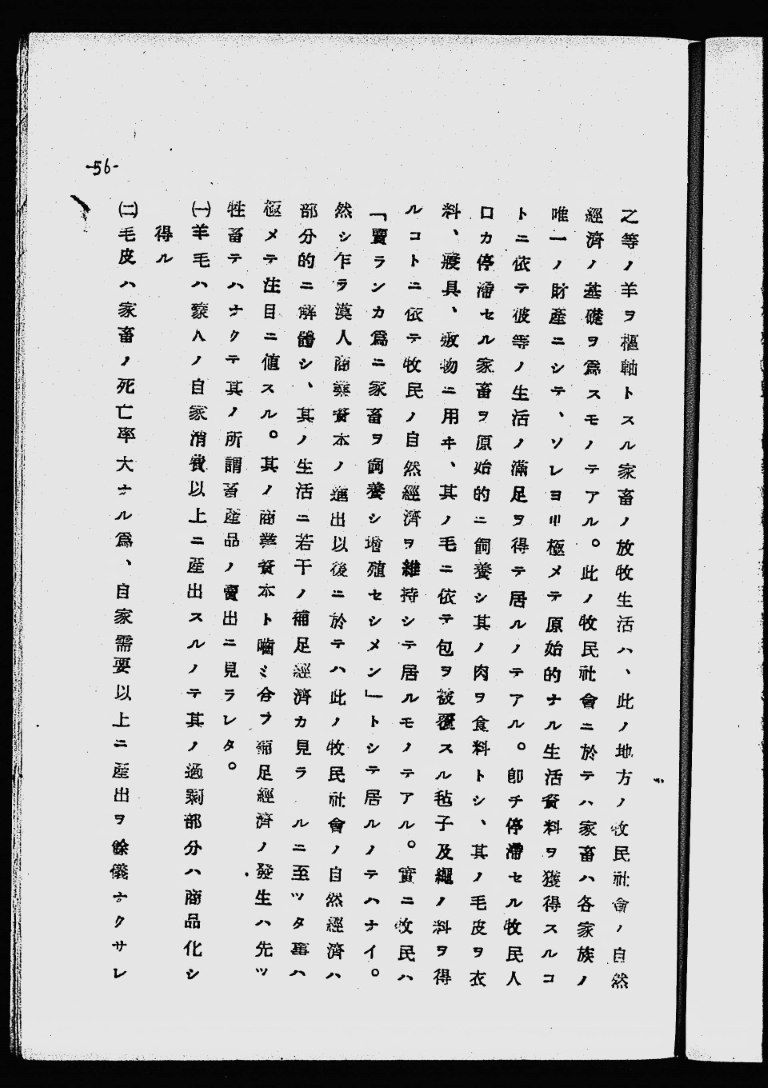 之等ノ羊ヲ樞軸トスル家畜ノ放牧生活ハ、此ノ地方ノ牧民社會ノ自然
經濟ノ基礎ヲ爲スモノテアル。此ノ牧民社會ニ於テハ家畜ハ各家族ノ
唯一ノ財産ニシテ、ソレヨリ極メテ原始的ナル生活資料ヲ獲得スルコ
トニ依テ彼等ノ生活ノ滿足ヲ得テ居ルノテアル。卽チ停滯セル牧民人
口カ停滯セル家畜ヲ原始的ニ飼養シ其ノ肉ヲ食料トシ、其ノ毛皮ヲ衣
料、寢具、敷物ニ用ヰ、其ノ毛ニ依テ包ヲ被覆スル毡子及繩ノ料ヲ得
ルコトニ依テ牧民ノ自然經濟ヲ維持シテ居ルモノテアル。實ニ牧民ハ
「賣ランカ爲ニ家畜ヲ飼養シ增殖セシメン」トシテ居ルノテハナイ。
然シ乍ラ漢人商業資本ノ進出以後ニ於テハ此ノ牧民社會ノ自然經濟ハ
部分的ニ解體シ、其ノ生活ニ若干ノ補足經濟カ見ラルニ至ツタ事ハ
極メテ注目ニ値スル。其ノ商業資本ト嚙ミ合フ補足經濟ノ發生ハ先ツ
牲畜テハナクテ其ノ所謂畜産品ノ賣出ニ見ラレタ。
㈠羊毛ハ蒙人ノ自家消費以上ニ産出スルノテ其ノ過剩部分ハ商品化シ
得ル
㈡毛皮ハ家畜ノ死亡率大ナル爲、自家需要以上ニ産出ヲ餘儀ナクサレ
-56-